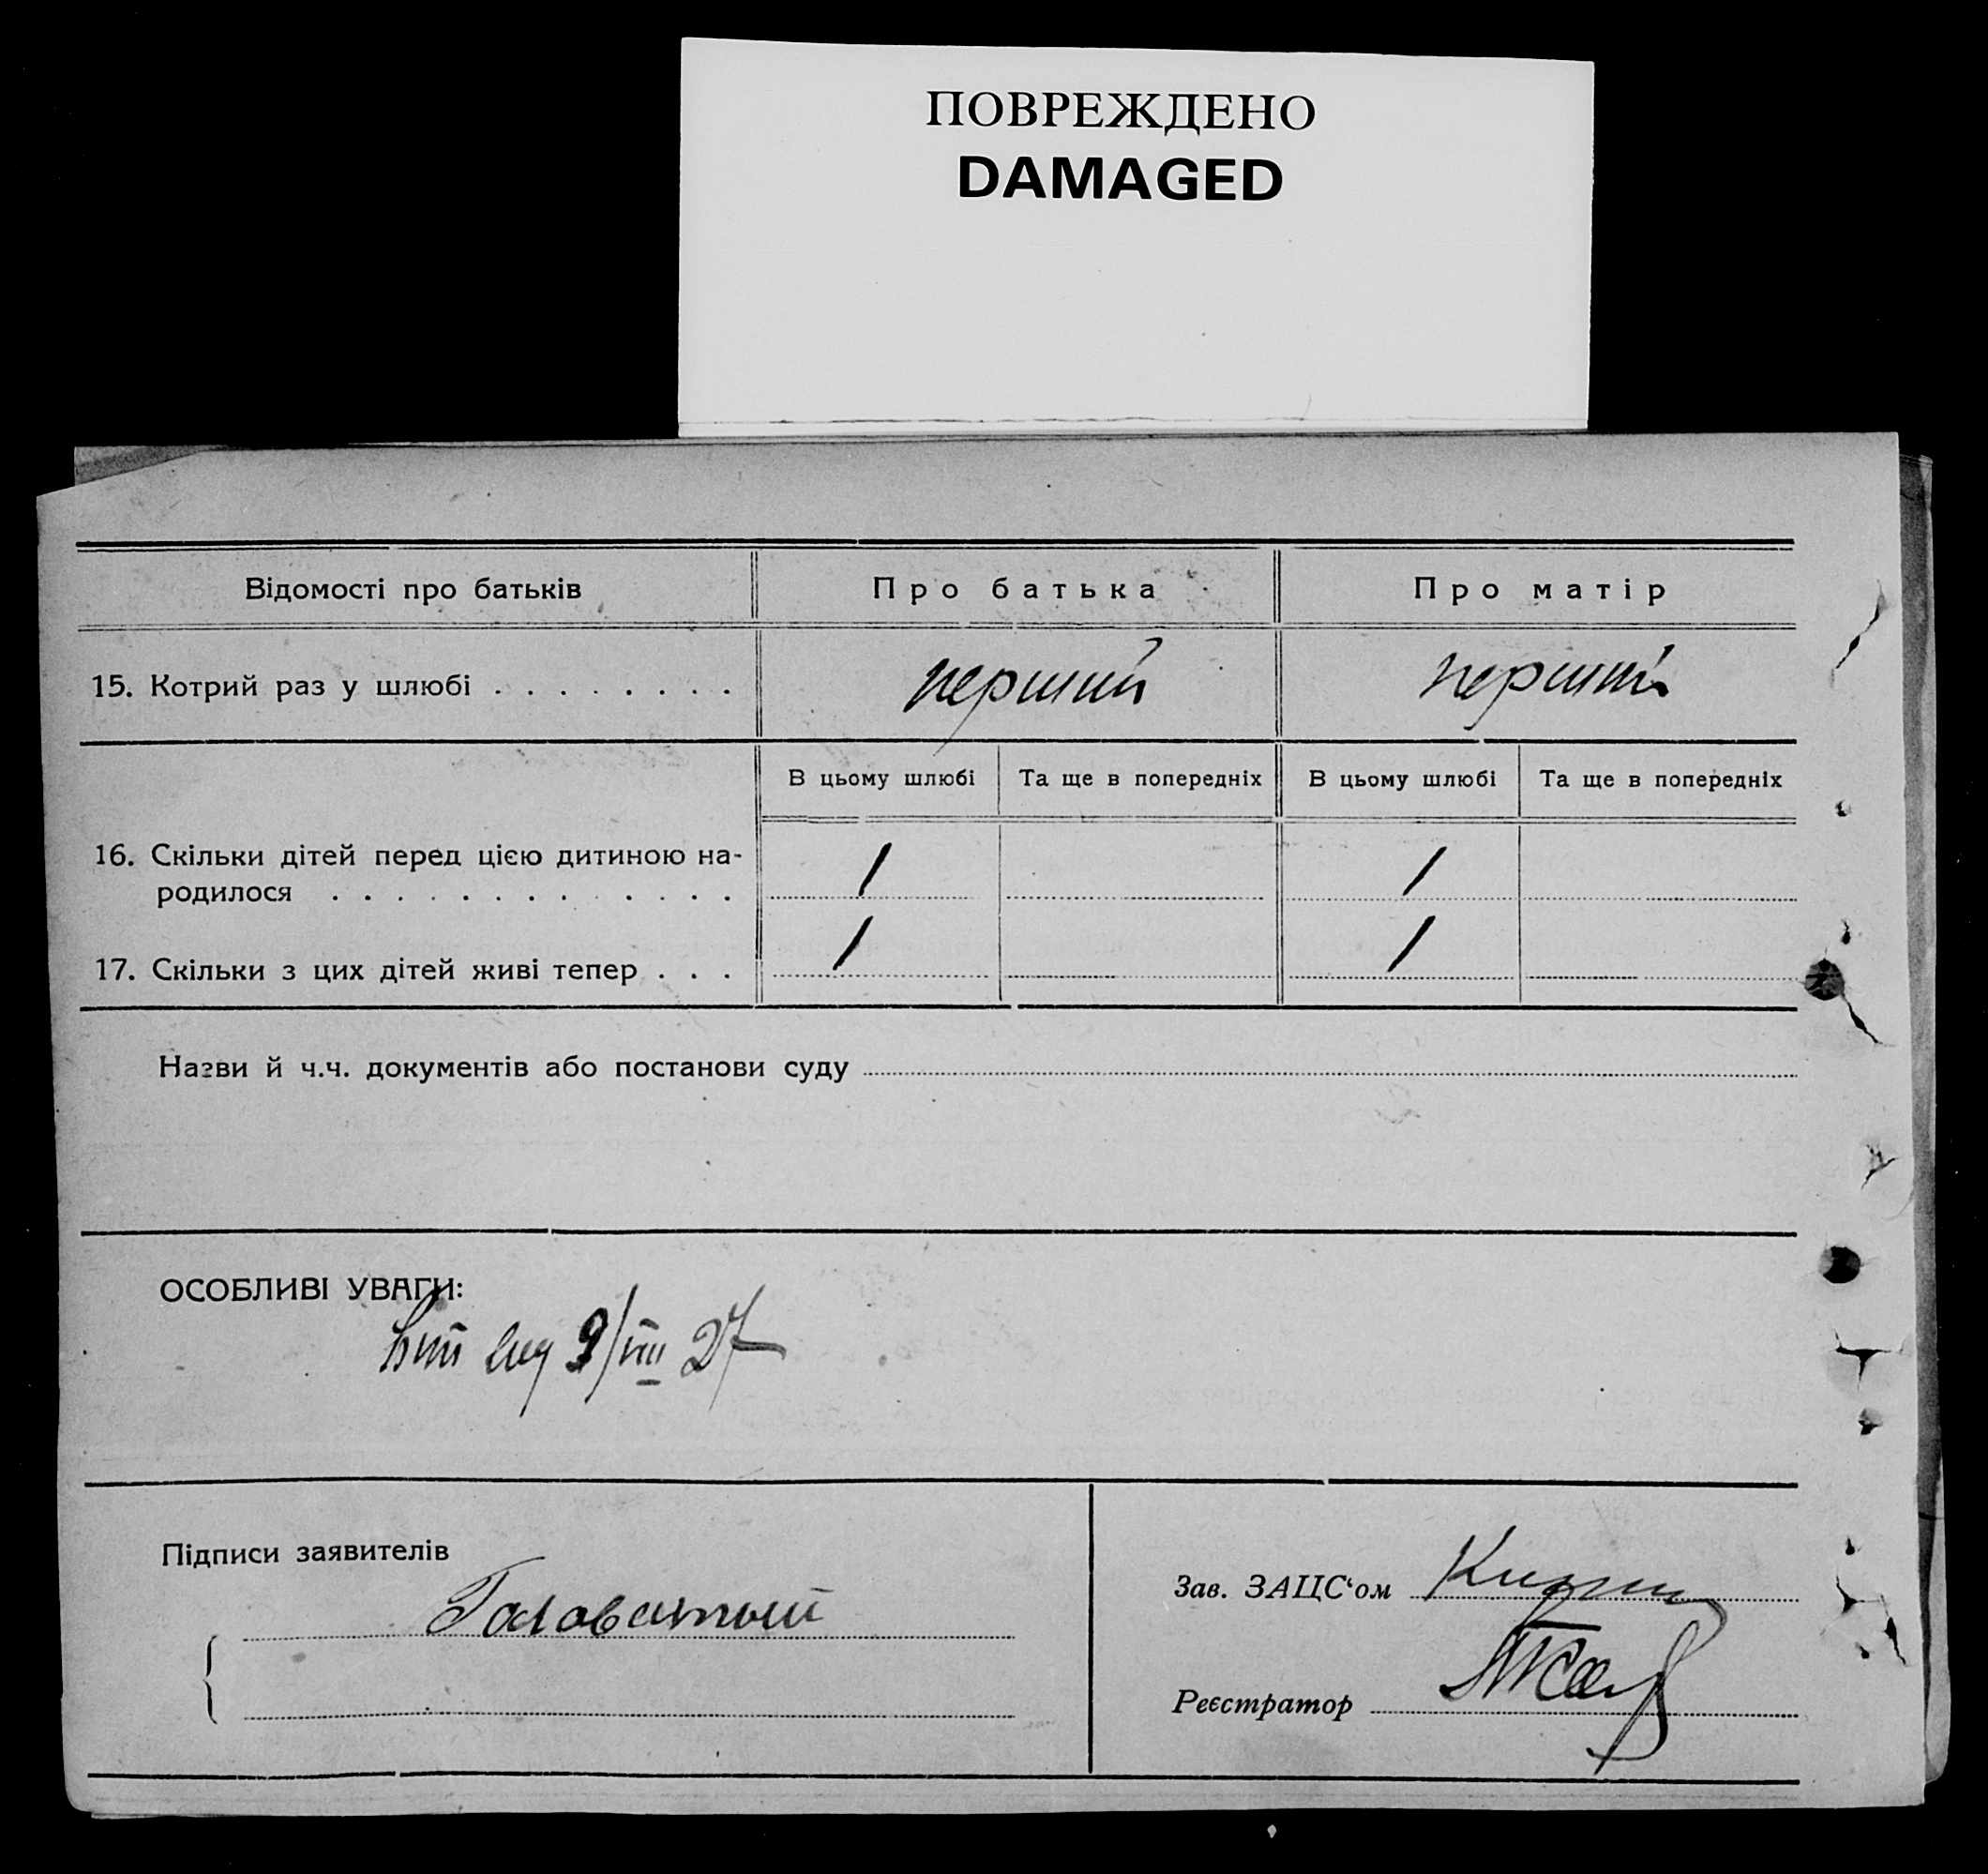 ПОВРЕЖДЕНО
DAMAGED
Відомості про батьків
Про батька
Про матір
15. Котрий раз у шлюбі . . . . . . . .
перший
перший
В цьому шлюбі
Та ще в попередніх
В цьому шлюбі
Та ще в попередніх
16. Скільки дітей перед цією дитиною на-
родилося . . . . . . . . . . . . .
1
1
17. Скільки з цих дітей живі тепер . . .
1
1
Назви й ч.ч. документів або постанови суду
ОСОБЛИВІ УВАГИ:
9/VIII 27
Підписи заявителів
Головатый
Зав. ЗАЦС‘ом
Реєстратор